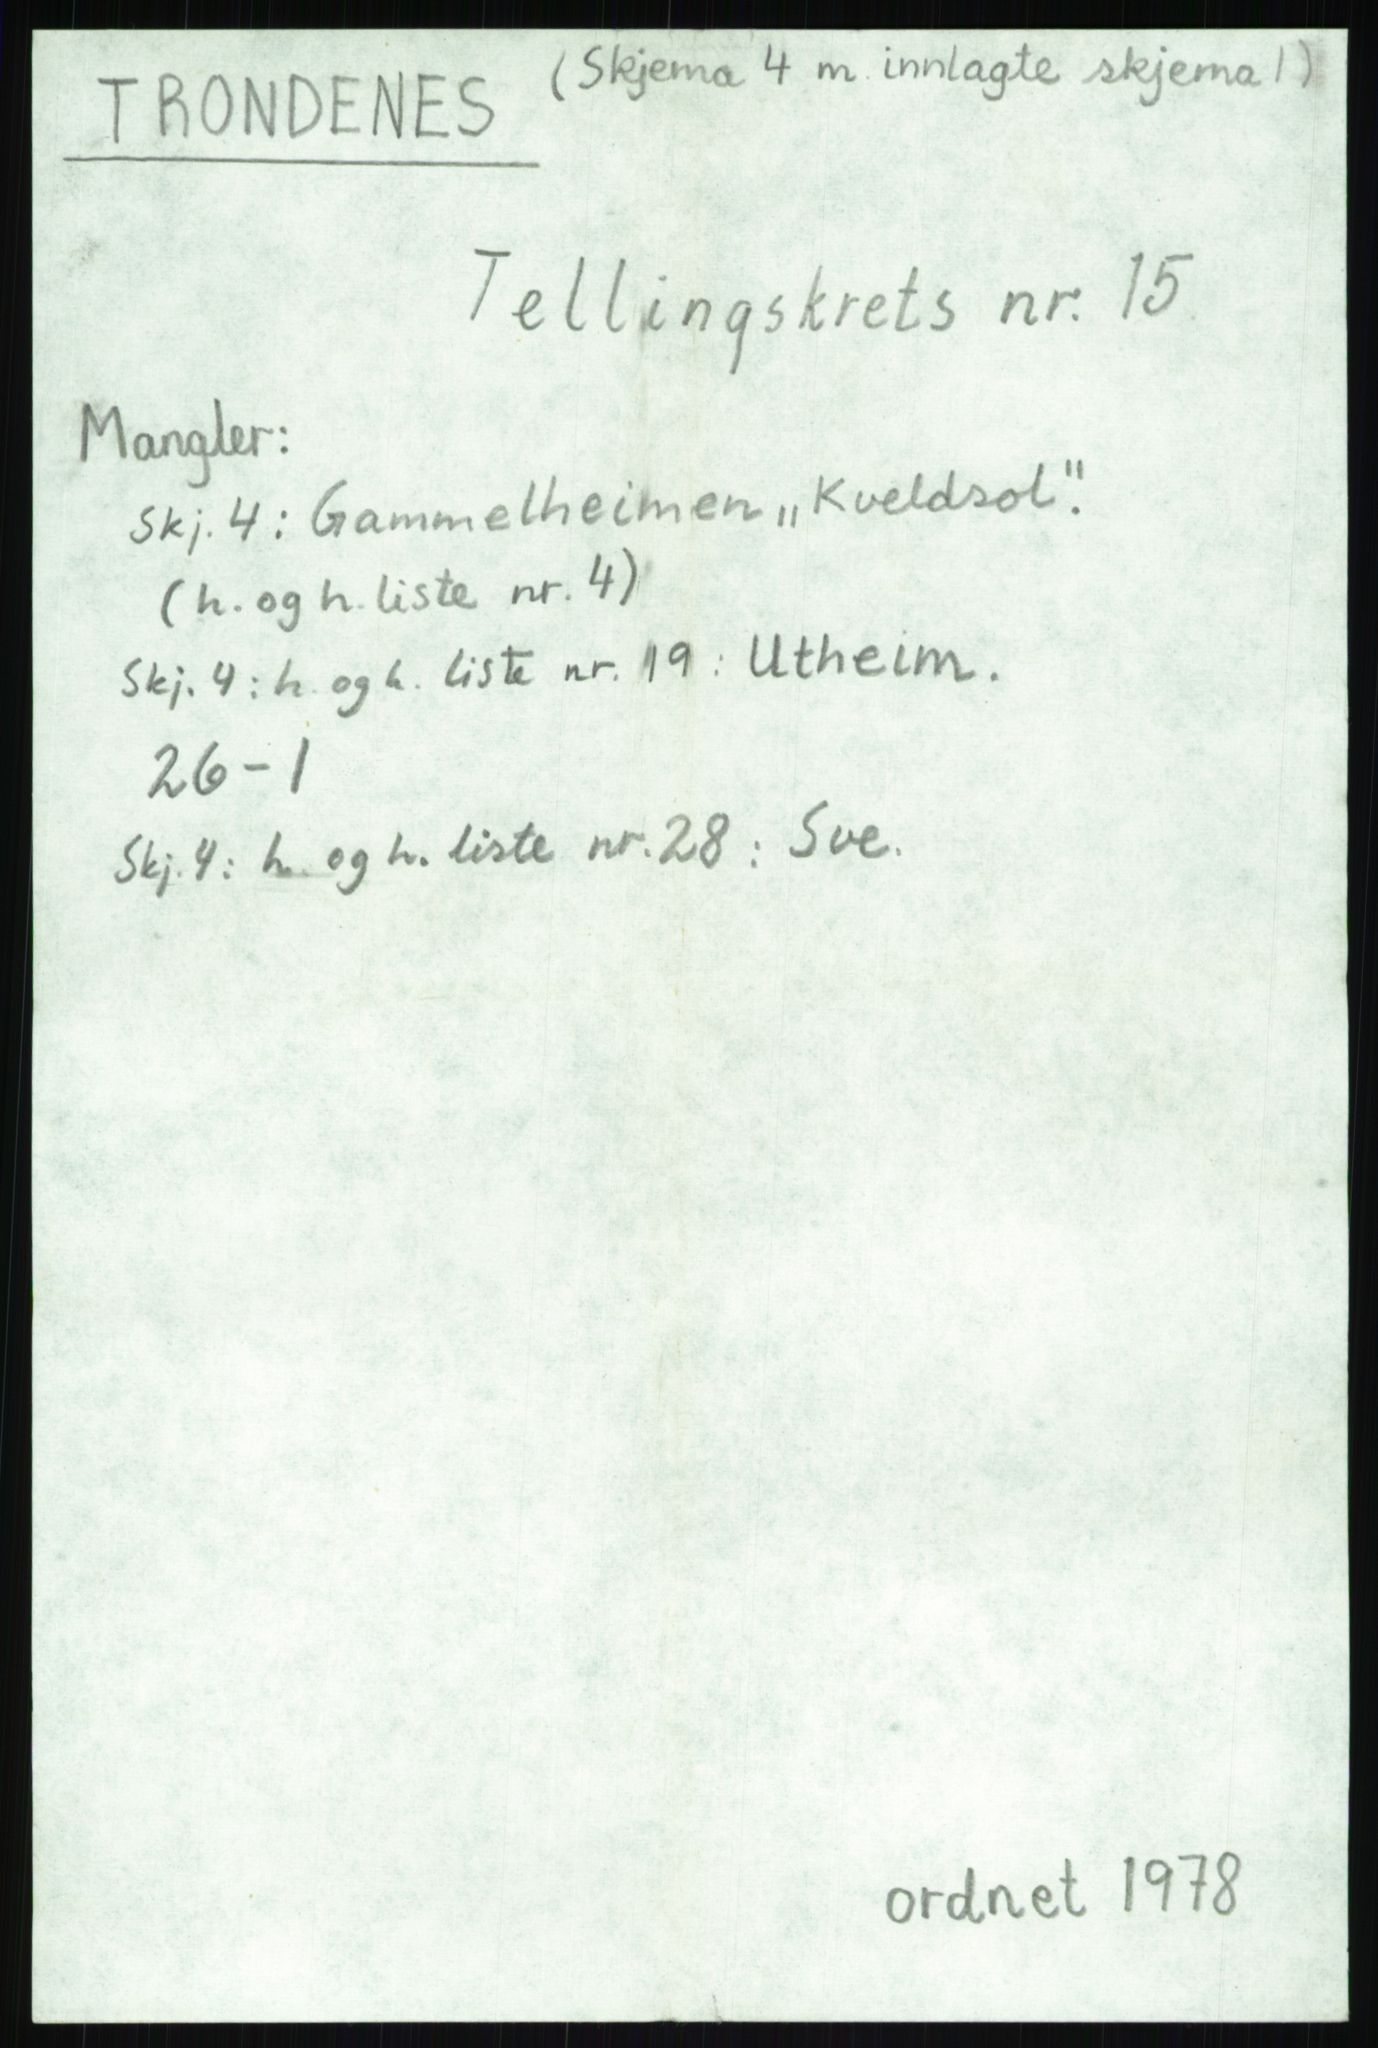 TRONDENES (Skjema 4 m. innlagte skjema 1)
Tellingskrets nr. 15
Mangler:
Skj. 4: Gammelheimen „Kveldsol".
(h. og h. liste nr. 4)
Skj. 4: h. og h. liste nr. 19: Utheim.
26-1
Skj. 4: h. og h. liste nr. 28: Sve.
ordnet 1978